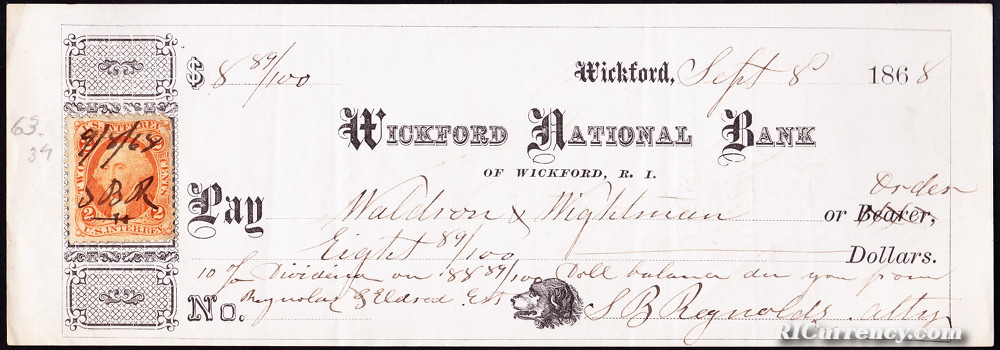 $ 8 89/100 Wickford, Sept 8 1868
WICKFORD NATIONAL BANK
OF WICKFORD, R. I.
Order
Pay Waldron & Wightman or Bearer,
Eight 89/100 Dollars.
10 % Dividend on 88 89/100 Doll balance du you from
No. Reynolds & Eldred Est
S B Reynolds. atty
63.
34
U.S. INTER. REV.
TWO CENTS
2 2
U.S. INTER. REV.
9/8/68
S B R
RICurrency.com